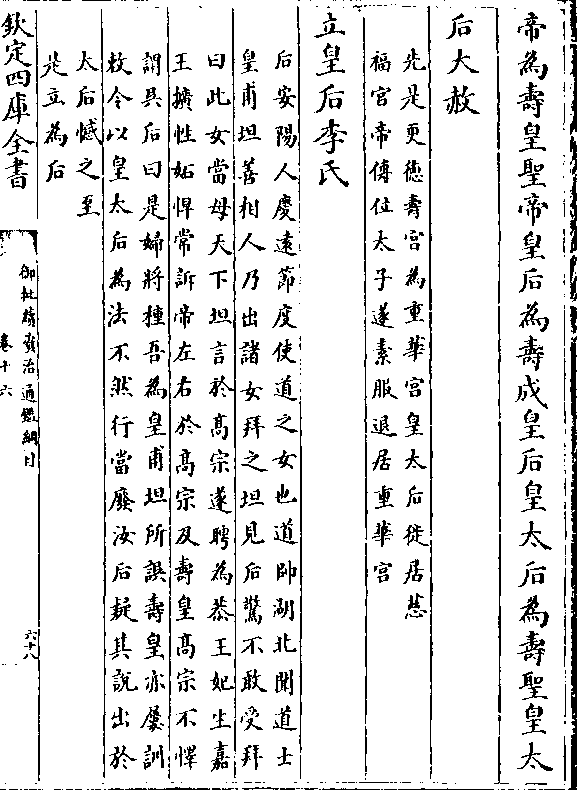 帝為壽皇聖帝皇后為壽成皇后皇太后為壽聖皇太
后大赦
先是更德壽宮為重華宮皇太后徙居慈
福宮帝傳位太子遂素服退居重華宮
立皇后李氏
后安陽人慶逺節度使道之女也道帥湖北聞道士
皇甫坦善相人乃出諸女拜之坦見后驚不敢受拜
曰此女當母天下坦言於髙宗遂聘為恭王妃生嘉
王擴性妬悍常訴帝左右於髙宗及壽皇髙宗不懌
謂吳后曰是婦將種吾為皇甫坦所誤壽皇亦屢訓
敕令以皇太后為法不然行當廢汝后疑其說出於
太后憾之至
是立為后
欽定四庫全書
御批續資治通鑑綱目
卷十六
六十八